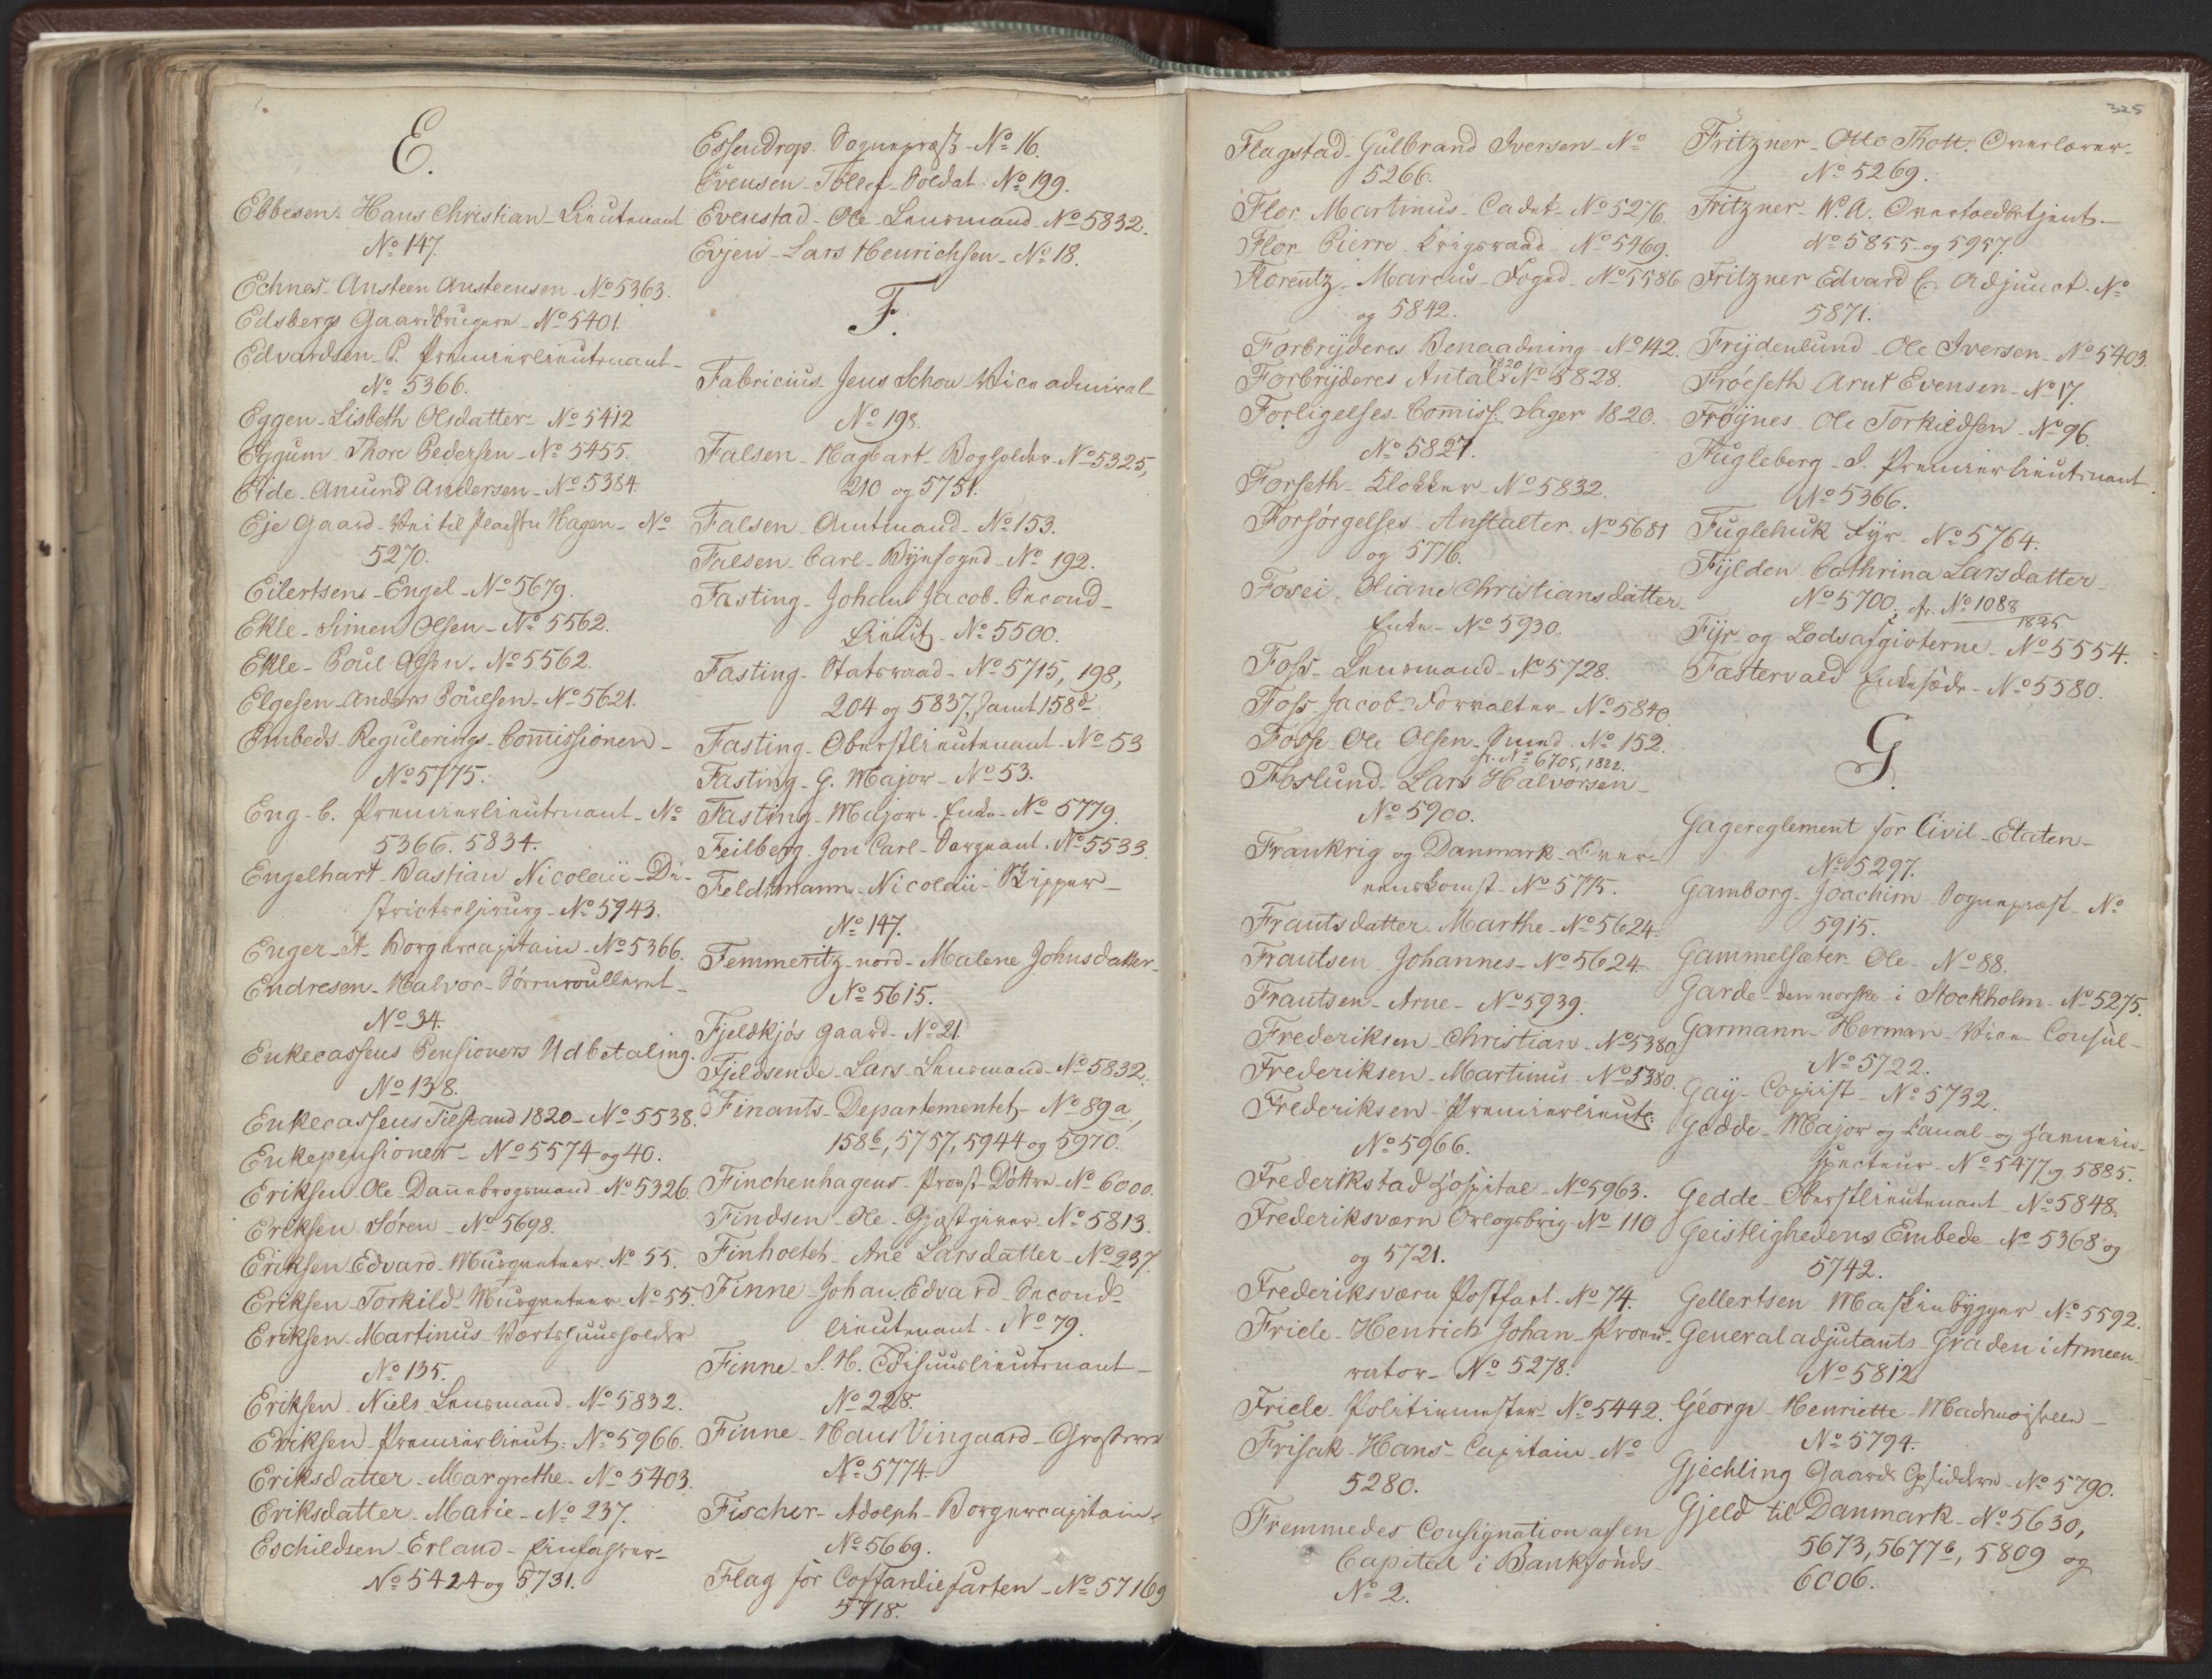 E.
Ebbesen. Hans Christian - Lieutenant
No 147.
Echnes - Ansteen Ansteensen - No 5363.
Edsbergs Gaardbrugere - No 5401.
Edvardsen - P. Premierlieutenant -
No 5366.
Eggen - Lisbeth Olsdatter - No 5412
Eggum Thore Pedersen - No 5455.
Eide - Amund Andersen - No 5384.
Eje Gaard - Vei til Hagen - No
5270.
Eilertsens - Engel - No 5679.
Ekle - Simen Olsen - No 5562.
Ekle - Poul Olsen - No 5562.
Elgesen - Anders Poulsen - No 5621.
Embeds - Regulerings - Com̄issionen -
No 5775.
Eng - C. Premierlieutenant - No
5366. 5834.
Engelhart - Bastian Nicolaii - Di-
strictschirurg - No 5943.
Enger - A - Borgercapitain - No 5366.
Endresen - Halvor - Sørouvlleret -
No 34.
Enkecassens Pensioners Udbetaling.
No 138.
Enkecassens Tilstand 1820 - No 5538.
Enkepensioner - No 5574 og 40.
Eriksen Ole Dan̄ebrogsmand - No 5326.
Eriksen Søren - No 5698.
Eriksen Edvard - Musqueteer - No 55.
Eriksen - Torkild - Musqueteer - No 55.
Eriksen - Martinus - Vertshuusholder
No 135.
Eriksen - Niels Lensmand - No 5832.
Eriksen - Premierlieut: No 5966.
Eriksdatter - Margrethe - No 5403.
Eriksdatter - Marie - No 237.
Eschildsen - Erland -
No 5424 og 5731.
Essendrop - Sognepræst - No 16.
Evensen - Tollef - Soldat - No 199.
Evenstad - Ole - Lensmand - No 5832.
Evjen - Lars Henrichsen - No 18.
F.
Fabricius - Jens Schou Vice admiral -
No 198.
Falsen - Hagbart - Bogholder - No 5325,
210 og 5751.
Falsen - Amtmand - No 153.
Falsen - Carl - Byefoged - No 192.
Fasting - Johan Jacob - Second -
Lieut. - No 5500.
Fasting - Statsraad - No 5715, 198,
204 og 5837, samt 158 d
Fasting - Oberstlieutenant - No 53
Fasting - G. Major - No 53.
Fasting - Majors - Enke - No 5779.
Feilberg - Jon Carl - Sergeant - No 5533.
Feldtmann - Nicolaii - Skipper -
No 147.
Femmeritz - nord - Malene Johnsdatter -
No 5615.
Fjeldkjøs Gaard - No 21.
Fjeldsende - Lars - Lensmand - No 5832.
Finants - Departementet - No 89a,
158b, 5757, 5944 og 5970.
Finchenhagens - Provst - Døttre - No 6000.
Findsen - Ole - Gjæstgiver - No 5813.
Finholtet - Ane Larsdatter - No 237.
Finne - Johan Edvard - Second -
lieutenant - No 79.
Finne - S. H. lieutenant -
No 228.
Finne - Hans Vingaard - Grosserer
No 5774.
Fischer - Adolph - Borgercapitain -
No 5669.
Flag for Coffardiefarten - No 5716 og
5718.
325
Flagstad - Gulbrand Iversen - No
5266.
Flor - Martinus - Cadet - No 5276.
Flor - Pierre Krigsraad - No 5469.
Florentz - Marcus - Foged - No 5586
og 5842.
Forbryderes Benaadning - No 142.
Forbryderes Antal 1820 No 5828.
Forligelses - Com̄iss. Sager 1820.
No 5827.
Forseth - Klokker - No 5832.
Forsørgelses - Anstalter - No 5681
og 5776.
Fosei - Oliane Christiansdatter -
Enke - No 5930.
Foss - Lensmand - No 5728.
Foss Jacob - Forvalter - No 5840.
Fosse Ole Olsen - Smed - No 152.
fr. No 6705, 1822.
Foslund - Lars Halvorsen -
No 5900.
Frankrig og Danmark - Over-
eenskomst - No 5775.
Frantsdatter - Marthe - No 5624.
Frantsen - Johannes - No 5624.
Frantsen - Arne - No 5939.
Frederiksen - Christian - No 5380.
Frederiksen - Martinus - No 5380.
Frederiksen - Premierlieut:
No 5966.
Frederikstad Hospital - No 5963.
Frederiksværn Orlogsbrig - No 110
og 5721.
Frederiksværn Postfart - No 74.
Friele - Henrich Johan - Procu-
rator - No 5278.
Friele - Politiemester - No 5442.
Frisak - Hans - Capitain - No
5280.
Fremmedes Consignation af en
Capital i Bankfonds -
No 2.
Fritzner - Otto Thott. Overlærer -
No 5269.
Fritzner - N. A. Overtoldbetjent -
No 5855 og 5957.
Fritzner Edvard C. Adjunct - No
5871.
Frydenlund - Ole Iversen - No 5403.
Frøeseth Arnt Evensen - No 17.
Frøynes - Ole Torkildsen - No 96.
Fugleberg - I. Premierlieutenant.
No 5366.
Fuglehuk Fyr - No 5764.
Fylden Cathrina Larsdatter -
No 5700, fr. No 1088/1825
Fyr og Lodsafgivterne - No 5554.
Fæstervald Enkesæde - No 5580.
G.
Gagereglement for Civil - Etaten -
No 5297.
Gamborg - Joachim - Sognepræst - No
5915.
Gammelsæter - Ole - No 88.
Garde - den norske i Stockholm - No 5275.
Garmann - Herman - Vice - Consul -
No 5722.
Gay - Copiist - No 5732.
Gedde - Major og Canal - og Havnein-
specteur - No 5477 og 5885.
Gedde - Oberstlieutenant - No 5848.
Geistlighedens Embede - No 5368 og
5742.
Gellertsen - Maskinbygger - No 5592.
Generaladjutants - Graden i Armeen -
No 5812
George - Henriette - Madmoiselle -
No 5794.
Gjechling Gaards Opsiddere - No 5790.
Gjeld til Danmark - No 5630,
5673, 5677b, 5809 og
6006.